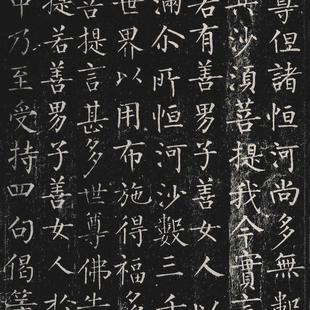 尊但諸恒河尚多無數
其沙湏菩提我今實言
若有善男子善女人以
滿尒所恒河沙數三千
世界以用布施得福多
菩提言甚多世尊佛告
提若善男子善女人於
中乃至受持四句偈等